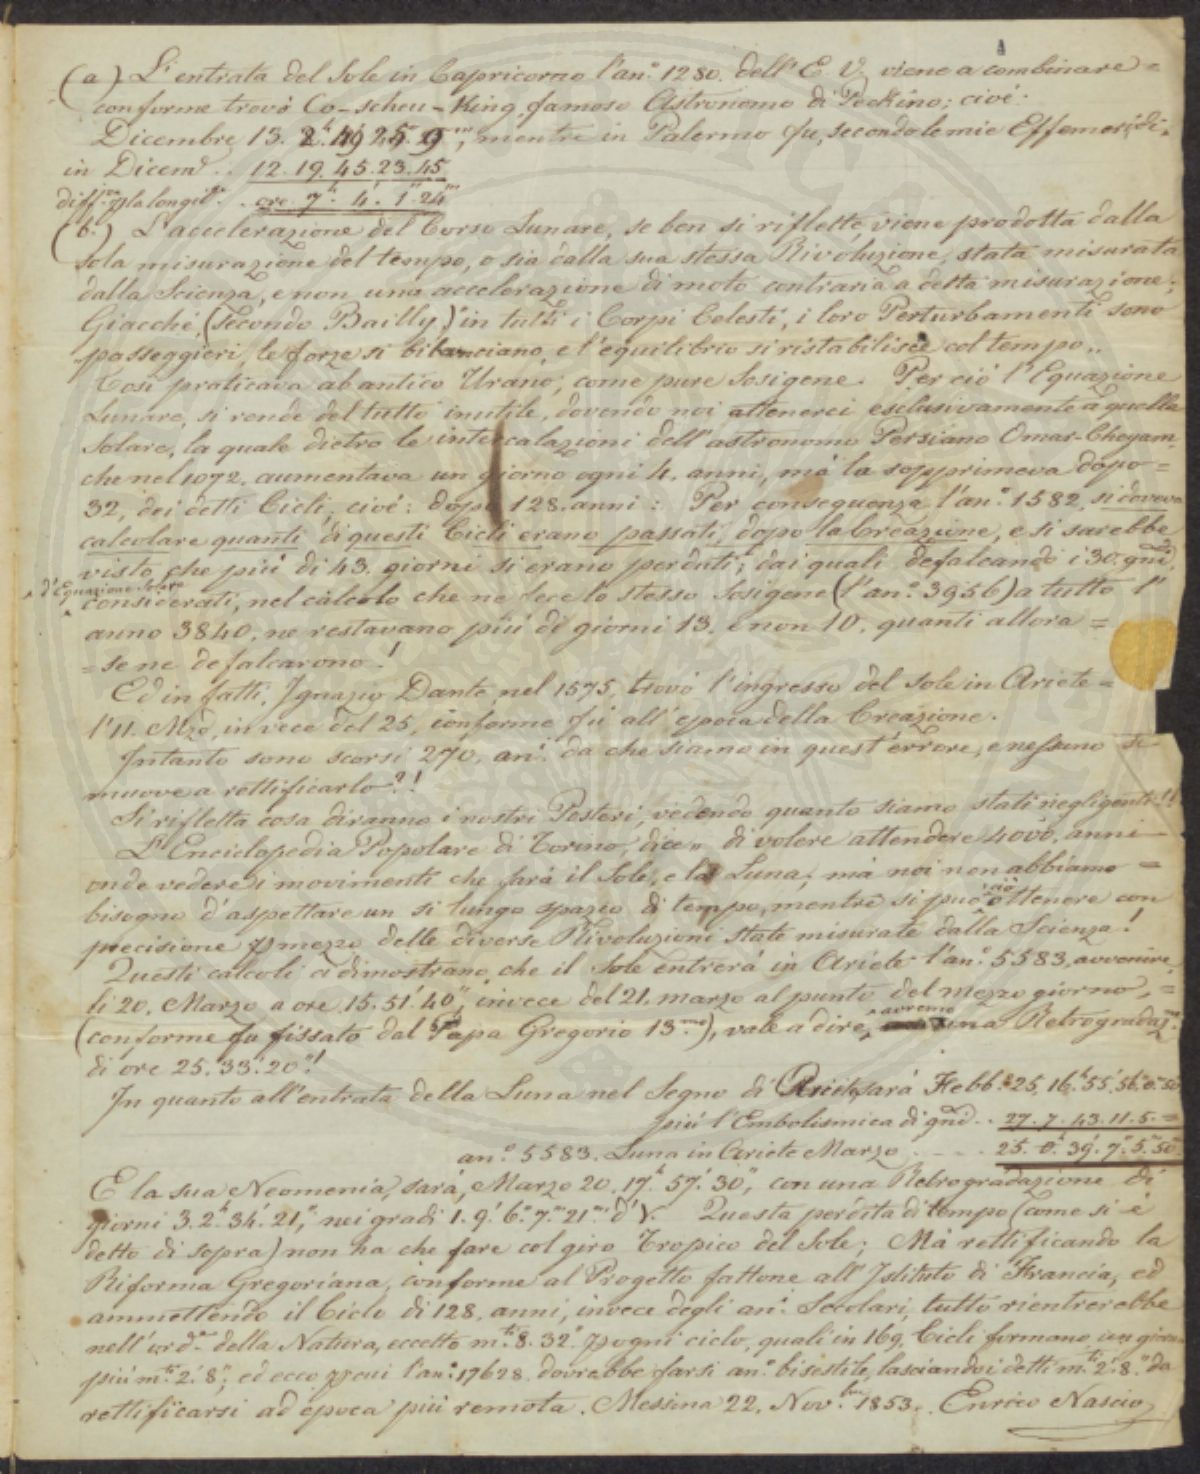 (a) L'entrata del Sole in Capricorno l'an.° 1280. dell'E. V. viene a combinare=
conforme trovò Co-scheu-King, famoso Astronomo di Peckino; cioè:
Dicembre 13. 2.h 49.' 25." 9''', mentre in Palermo fu, secondo le mie Effemeridi
in Dicem.e .. 12. 19. 45. 23. 45
diff.za p la longit.e .. ore 7.h 4.' 1." 24'''
(b.) L'accelerazione del Corso Lunare, se ben si riflette, viene prodotta dalla
sola misurazione del tempo, o sia dalla sua stessa Rivoluzione, stata misurata
dalla Scienza, e non una accelerazione di moto contraria a detta misurazione;
Giacchè, (secondo Bailly) "in tutti i Corpi Celesti, i loro Perturbamenti sono
passeggieri, le forze si bilanciano, e l'equilibrio si ristabilisce col tempo„
Così praticava ab antico Urano, come pure Sosigene. Per ciò l'Equazione
Lunare, si rende del tutto inutile, dovendo noi attenerci esclusivamente a quella
Solare, la quale dietro le intercalazioni dell'astronomo Persiano Omar-Cheyam,
che nel 1072. aumentava un giorno ogni 4. anni, mà la sopprimeva dopo=
32, dei detti Cicli, cioè: dopo 128. anni: Per conseguenza l'an.° 1582, si doveva
calcolare quanti di questi Cicli erano passati, dopo la Creazione, e si sarebbe
visto che più di 43. giorni si erano perduti; dai quali defalcando i 30. gni
d'Equazione Solare
considerati, nel calcolo che ne fece lo stesso Sosigene (l'an.° 3956) a tutto l'
anno 3840. ne restavano più di giorni 13. e non 10. quanti allora=
=se ne defalcarono!
Ed in fatti, Ignazio Dante nel 1575, trovò l'ingresso del Sole in Ariete=
l'11. Mzo, in vece del 25, conforme fù all'epoca della Creazione.
Intanto sono scorsi 270. an.i da che siamo in quest'errore, e nessuno si
muove a rettificarlo?!
Si rifletta cosa diranno i nostri Posteri, vedendo quanto siamo stati negligenti!!
L'Enciclopedia Popolare di Torino, dice „ di volere attendere 4000. anni
onde vedere i movimenti che farà il Sole, e la Luna; mà noi non abbiamo=
bisogno d'aspettare un sì lungo spazio di tempo, mentre si può ciò ottenere con
precisione p mezzo delle diverse Rivoluzioni state misurate dalla Scienza!
Questi calcoli ci dimostrano, che il Sole entrerà in Ariete l'an.° 5583, avvenire
li 20. Marzo a ore 15. 51.' 40", invece del 21. marzo al punto del mezzo giorno,=
(conforme fu fissato dal Papa Gregorio 13.mo), vale a dire, avremo una Retrogradaz.ne
di ore 25. 33.' 20"!
In quanto all'entrata della Luna nel Segno di Ariete sarà Febb.° 25. 16.h 55.' 56." 0.''' 50
più l'Embolismica di gni .. 27. 7. 43. 11. 5.=
an.° 5583. Luna in Ariete Marzo .... 25. 0.h 39.' 7." 5.''' 50
E la sua Neomenia, sarà, Marzo 20. 17.h 57.' 30", con una Retrogradazione di
giorni 3. 2.h 34.' 21", nei gradi 1. 9.' 6." 7.''' 21'''' d'♈. Questa perdita di tempo (come si è
detto di sopra) non ha che fare col giro Tropico del Sole; Mà rettificando la
Riforma Gregoriana, conforme al Progetto fattone all'Istituto di Francia, ed
ammettendo il Ciclo di 128. anni, invece degli an.i Secolari, tutto rientrerebbe
nell'ord.e della Natura, eccetto m.ti 8. 32" p ogni ciclo, quali in 169. Cicli formano un giorno
più m.ti 2.' 8", ed ecco p cui l'an.° 17628. dovrebbe farsi an.° bisestile, lasciando i detti m.ti 2.' 8." da
rettificarsi ad epoca più remota. Messina 22. Nov.bre 1853. Enrico Nascio